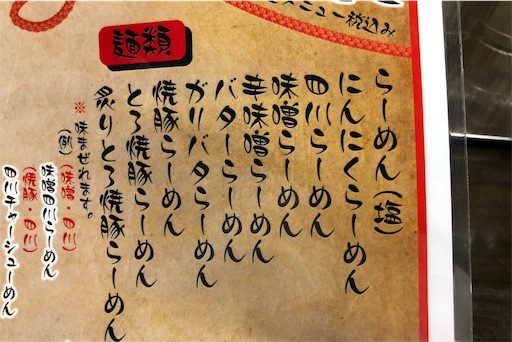 メニュー税込み
麺類
らーめん(塩)
にんにくらーめん
四川らーめん
味噌らーめん
辛味噌らーめん
バターらーめん
ガリバタらーめん
焼豚らーめん
とろ焼豚らーめん
炙りとろ焼豚らーめん
※味まぜれます。
(例)(味噌・四川)
味噌四川らーめん
(焼豚・四川)
四川チャーシューめん